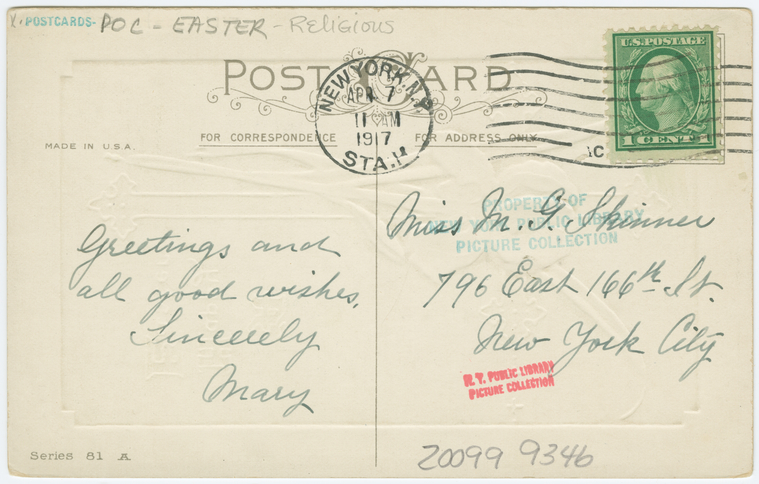 X · POSTCARDS- POC - EASTER - Religious
POST CARD
U.S.POSTAGE
1 CENT 1
NEW YORK, N.Y.
APR 7
11 AM
1917
STA.H
FOR CORRESPONDENCE
FOR ADDRESS ONLY
MADE IN U.S.A.
Greetings and
all good wishes.
Sincerely
Mary
PROPERTY OF
NEW YORK PUBLIC LIBRARY
PICTURE COLLECTION
Miss M. G. Skinner
796 East 166th St.
New York City
N. Y. PUBLIC LIBRARY
PICTURE COLLECTION
Series 81 A
20099 9346